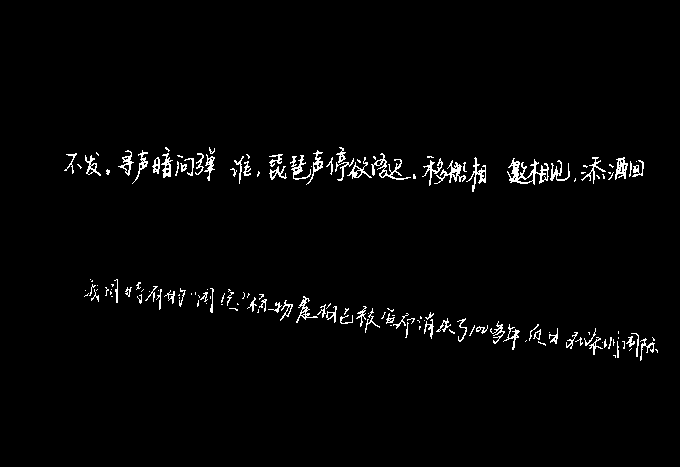 不发。寻声暗问弹 谁,琵琶声停欲语迟.移船相 邀相见,添酒回
我国特有的"活化"植物 已被宣布消失了100多年,近日在深圳国际